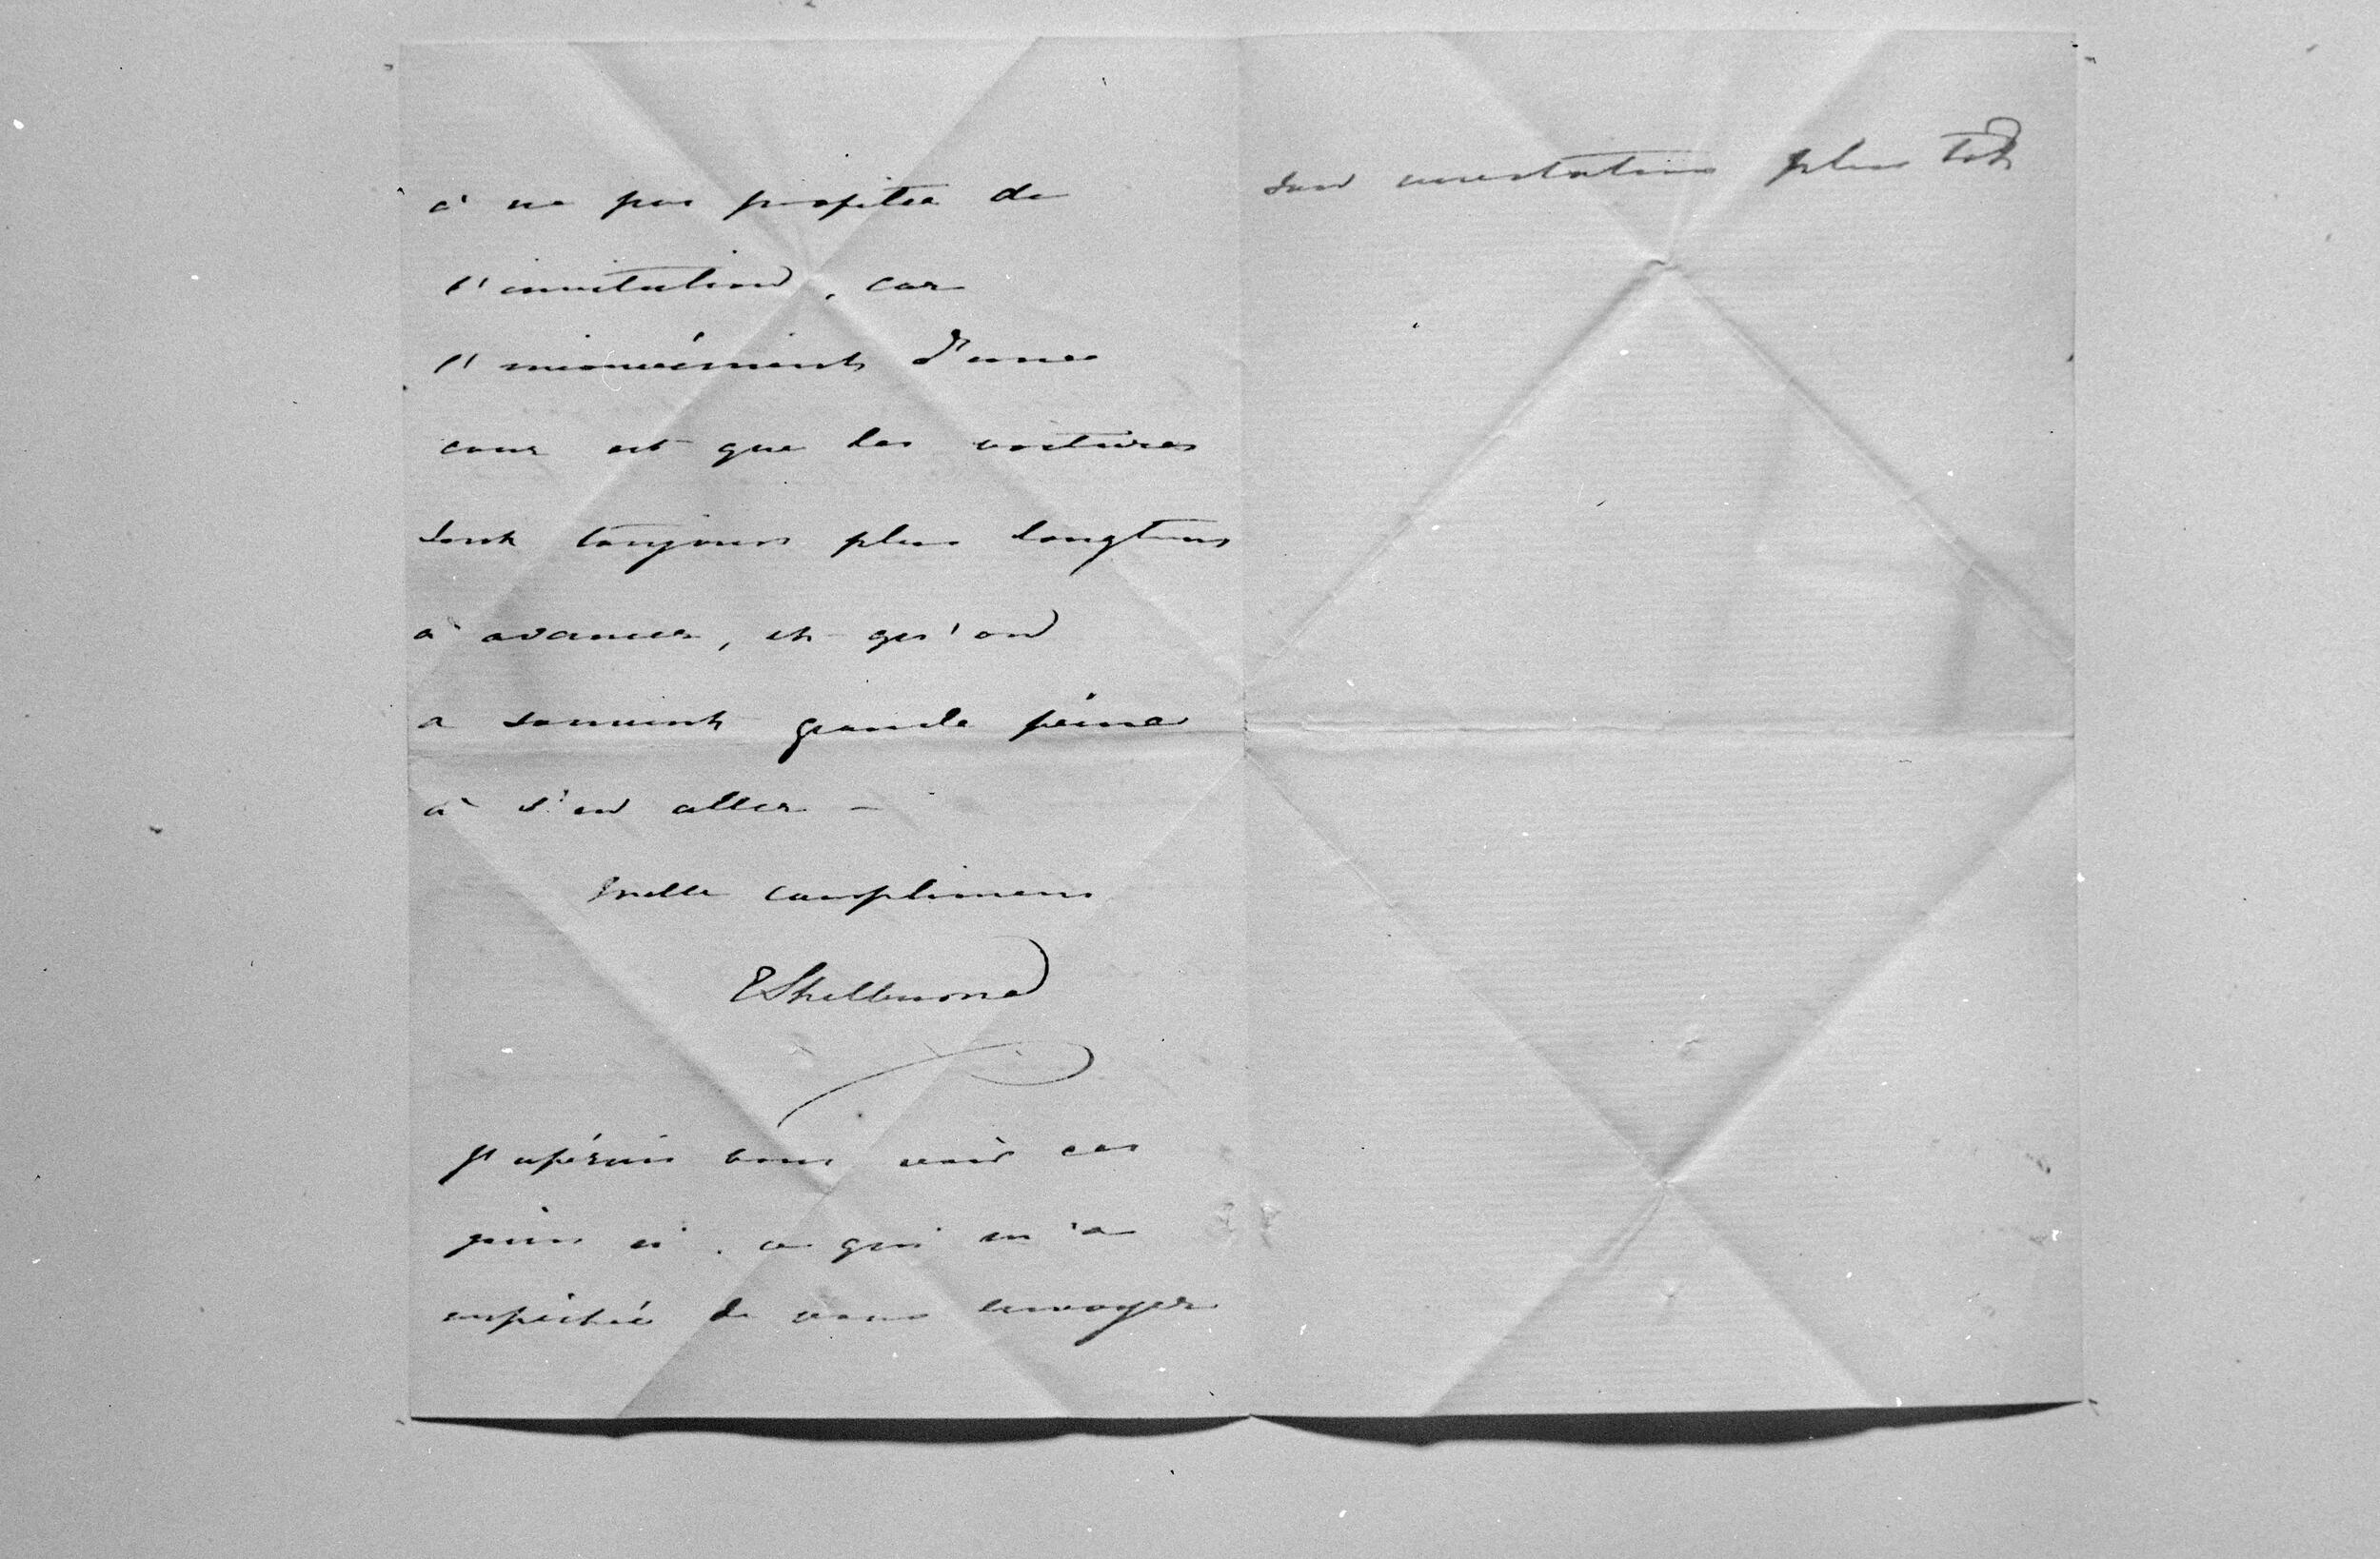 à ne pas profiter de
l'invitation, car
l'inconvénient d'une
cour est que les voitures
sont toujours plus longtems
à avancer, et qu'on
a souvent grande peine
à s'en aller –
Mille complimens
EShelburne
J'espérais vous voir ces
jours ci. ce qui m'a
empêchée de vous envoyer
son invitation plus tôt